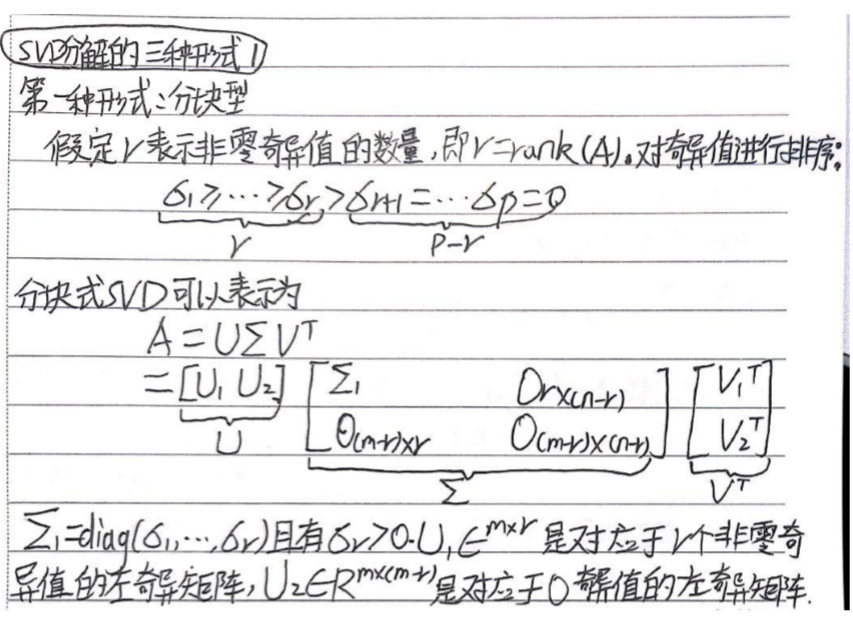 SVD分解的三种形式1
第一种形式:分块型
假定r表示非零奇异值的数量,即r=rank(A)。对奇异值进行排序:
σ₁≥⋯≥σᵣ>σᵣ₊₁=⋯σₚ=0
r p-r
分块式SVD可以表示为
A=UΣVᵀ
=[U₁ U₂] [Σ₁ 0r×(n-r) [V₁ᵀ
0(m-r)×r 0(m-r)×(n-r)] V₂ᵀ]
U Σ Vᵀ
Σ₁=diag(σ₁,⋯,σᵣ)且有σᵣ>0.U₁∈ᵐˣʳ是对应于r个非零奇
异值的左奇异矩阵,U₂∈Rᵐˣ⁽ᵐ⁻ʳ⁾是对应于0奇异值的左奇异矩阵.